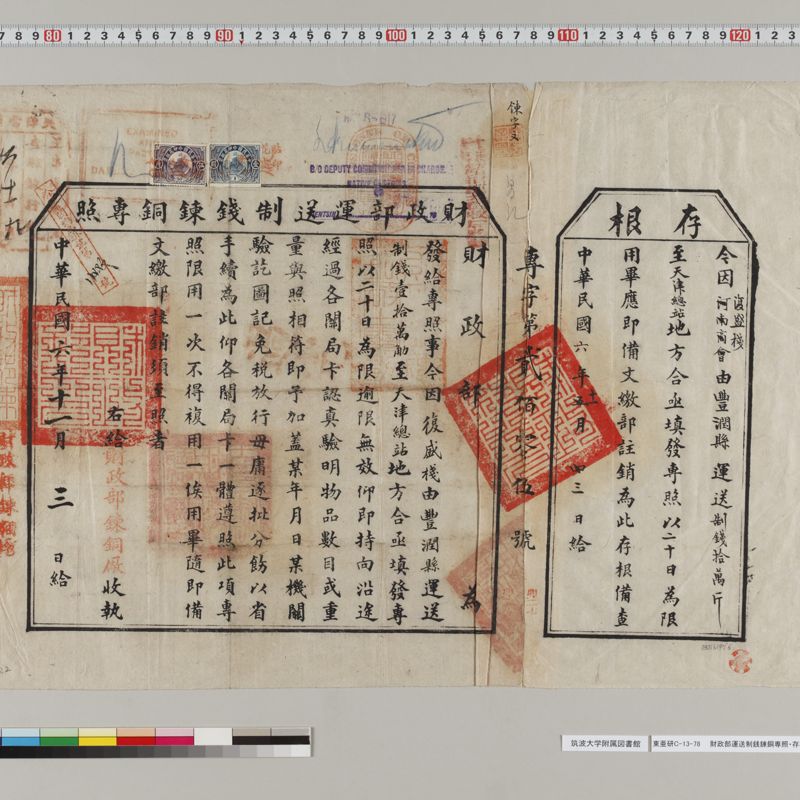 存根
今因復盛棧河南商會由豐潤縣運送制錢拾萬斤
至天津總站地方合亟填發專照以二十日為限
用畢應即備文繳部註銷為此存根備查
中華民國六年十一月三日給
專字第貳佰零伍號
財政部運送制錢銅專照
財政部為
發給專照事今因復盛棧由豐潤縣運送
制錢壹拾萬觔至天津總站地方合亟填發專
照以二十日為限逾限無效仰即持向沿途
經過各關局卡認真驗明物品數目或重
量與照相符即予加蓋某年月日某機關
驗訖圖記免稅放行毋庸逐批分飭以省
手續為此仰各關局卡一體遵照此項專
照限用一次不得複用一俟用畢隨即備
文繳部註銷須至照者
右給財政部鍊銅廠收執
中華民國六年十一月三日給
EXAMINED
B/O DEPUTY COMMISSIONER IN CHARGE.
筑波大学附属図書館
東亜研C-13-78 財政部運送制銭錬銅専照・存